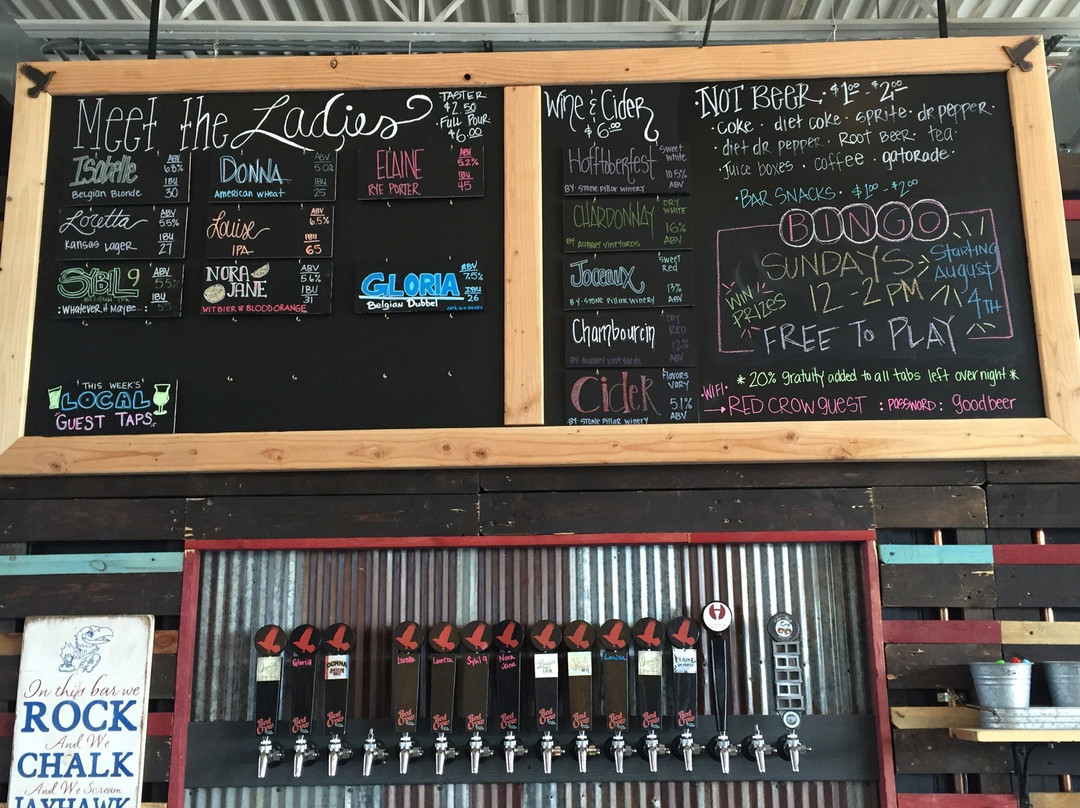 Meet the Ladies
TASTER
$2.50
FULL POUR
$6.00
Isabelle
Belgian Blonde
ABV
6.8%
IBU
30
DONNA
American wheat
ABV
5.0%
IBU
25
ELAINE
RYE PORTER
ABV
5.2%
IBU
45
Loretta
Kansas Lager
ABV
5.5%
IBU
27
Louise
IPA
ABV
6.5%
IBU
65
SYBIL 9
BELGIAN IPA
:Whatever, it Maybe...:
ABV
5.5%
IBU
NORA JANE
WITBIER W BLOOD ORANGE
ABV
5.6%
IBU
31
GLORIA
Belgian Dubbel
ABV
7.5%
IBU
26
'THIS WEEK'S'
LOCAL
GUEST TAPS
Wine & Cider
$6.00
Hofftoberfest
BY: STONE PILLAR WINERY
sweet
white
10.5%
ABV
CHARDONNAY
BY: AUBREY VINEYARDS
DRY
WHITE
16%
ABV
Joceaux
BY: STONE PILLAR WINERY
sweet
red
13%
ABV
Chambourcin
BY: AUBREY VINEYARDS
DRY
RED
12%
ABV
Cider
BY: STONE PILLAR WINERY
FLAVORS
VARY
5.1%
ABV
·NOT BEER· $1.00 - $2.00
·coke· diet coke · sprite · dr pepper·
·diet dr pepper · ROOT BEER · tea·
·juice boxes · coffee · gatorade·
·BAR SNACKS· $1.00 - $2.00
BINGO
SUNDAYS
12 - 2 PM
WIN
PRIZES
STARTING
August
4TH
FREE TO PLAY
*20% gratuity added to all tabs left overnight*
·WIFI·
→ RED CROW GUEST : PASSWORD: goodbeer
Gloria
DONNA
Loretta
Loretta
Sybil 9
Nora
Jane
IPA
Louise
ELAINE
Red Crow
Red Crow
Red Crow
Red Crow
Red Crow
Red Crow
Red Crow
Red Crow
Red Crow
Red Crow
Red Crow
Red Crow
In this bar we
ROCK
And We
CHALK
And We Scream
JAYHAWK